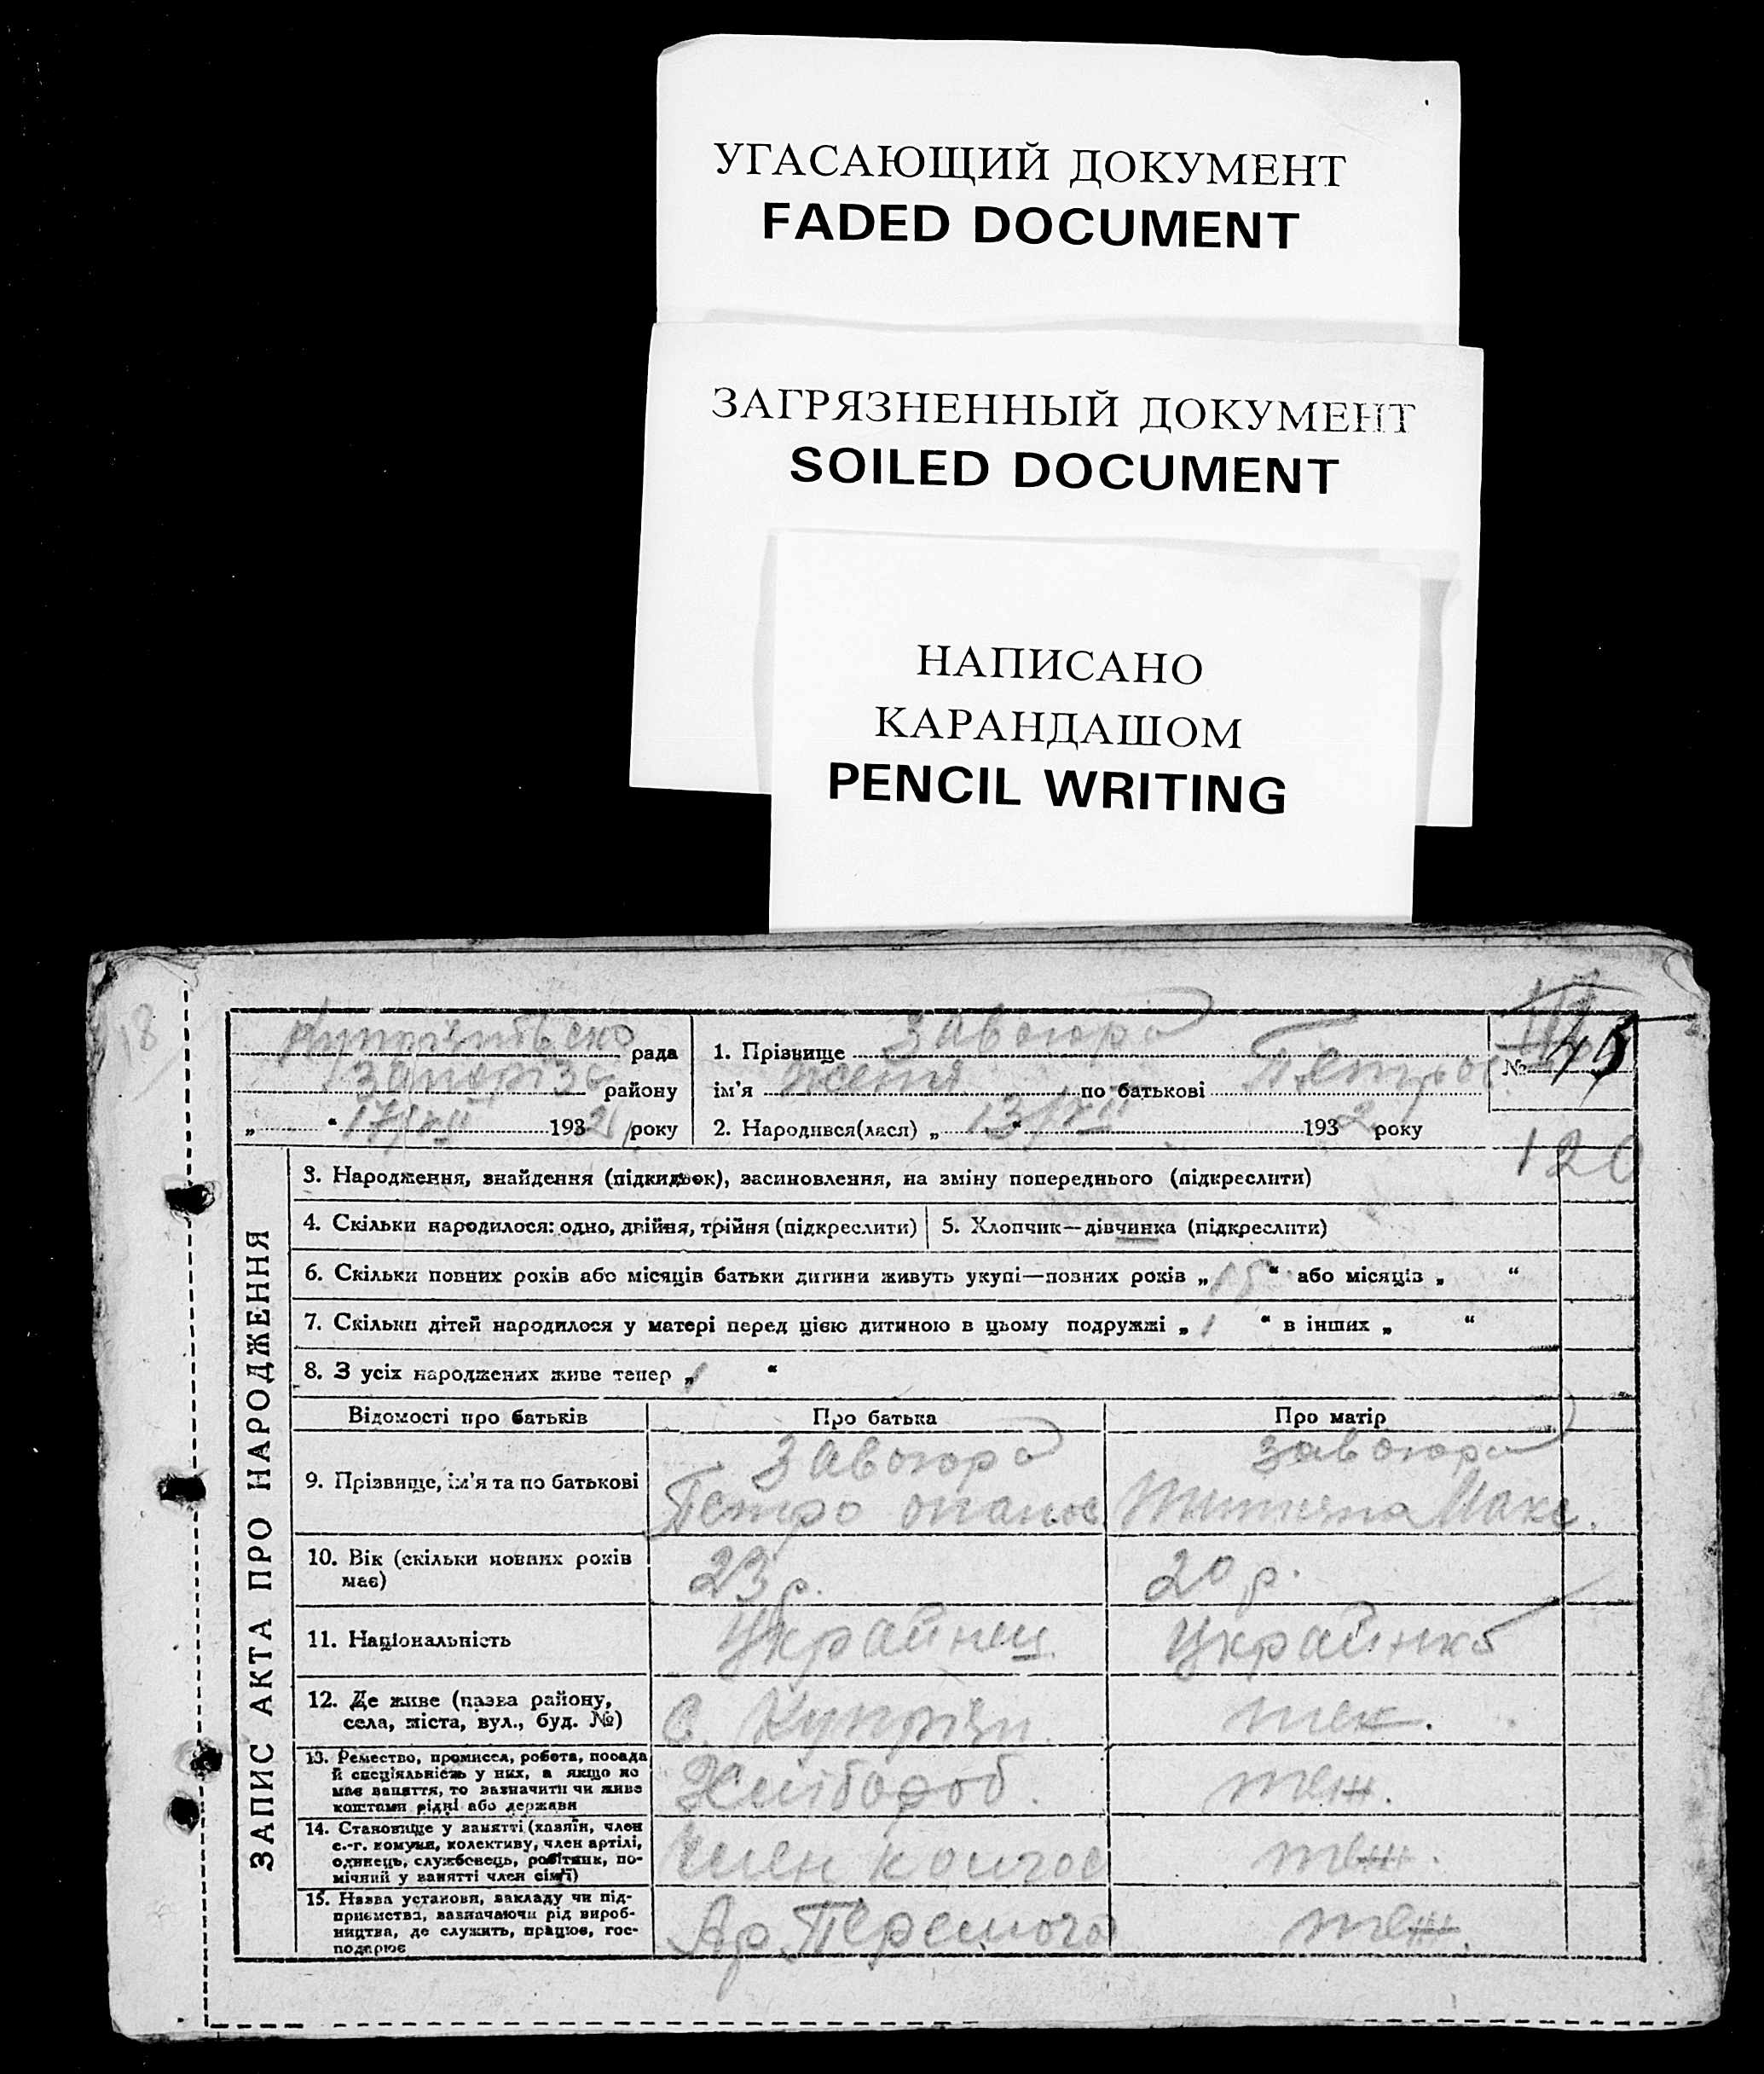 УГАСАЮЩИЙ ДОКУМЕНТ
FADED DOCUMENT
ЗАГРЯЗНЕННЫЙ ДОКУМЕНТ
SOILED DOCUMENT
НАПИСАНО
КАРАНДАШОМ
PENCIL WRITING
18
рада
району
„ “ 17/XII 1932 року
1. Прізвище
ім'я Женя по батькові Петров
2. Народився(лася) „ 13/XII “ 1932 року
№ 45
120
ЗАПИС АКТА ПРО НАРОДЖЕННЯ
3. Народження, знайдення (підкидьок), засиновлення, на зміну попереднього (підкреслити)
4. Скільки народилося: одно, двійня, трійня (підкреслити)
5. Хлопчик—дівчинка (підкреслити)
6. Скільки повних років або місяців батьки дитини живуть укупі—повних років „ “ або місяців „ “
7. Скільки дітей народилося у матері перед цією дитиною в цьому подружжі „ 1 “ в інших „ “
8. З усіх народжених живе тепер „ 1 “
Відомості про батьків Про батька Про матір
9. Прізвище, ім'я та по батькові
Петро Макс.
10. Вік (скільки повних років має) 23 р. 20 р.
11. Національність Українец Українка
12. Де живе (назва району,
села, міста, вул., буд. №) с.
13. Ремество, промисел, робота, посада
й спеціяльність у них, а якщо не
має заняття, то зазначити чи живе
коштами рідні або держави
Хлібороб. теж.
14. Становище у занятті (хазяїн, член
с.-г. комуни, колективу, член артілі,
одинець, службовець, робітник, по-
мічний у занятті член сім'ї)
член колгос теж.
15. Назва установи, закладу чи під-
приємства, зазначаючи рід вироб-
ництва, де служить, працює, гос-
подарює
Ар. Перемога теж.